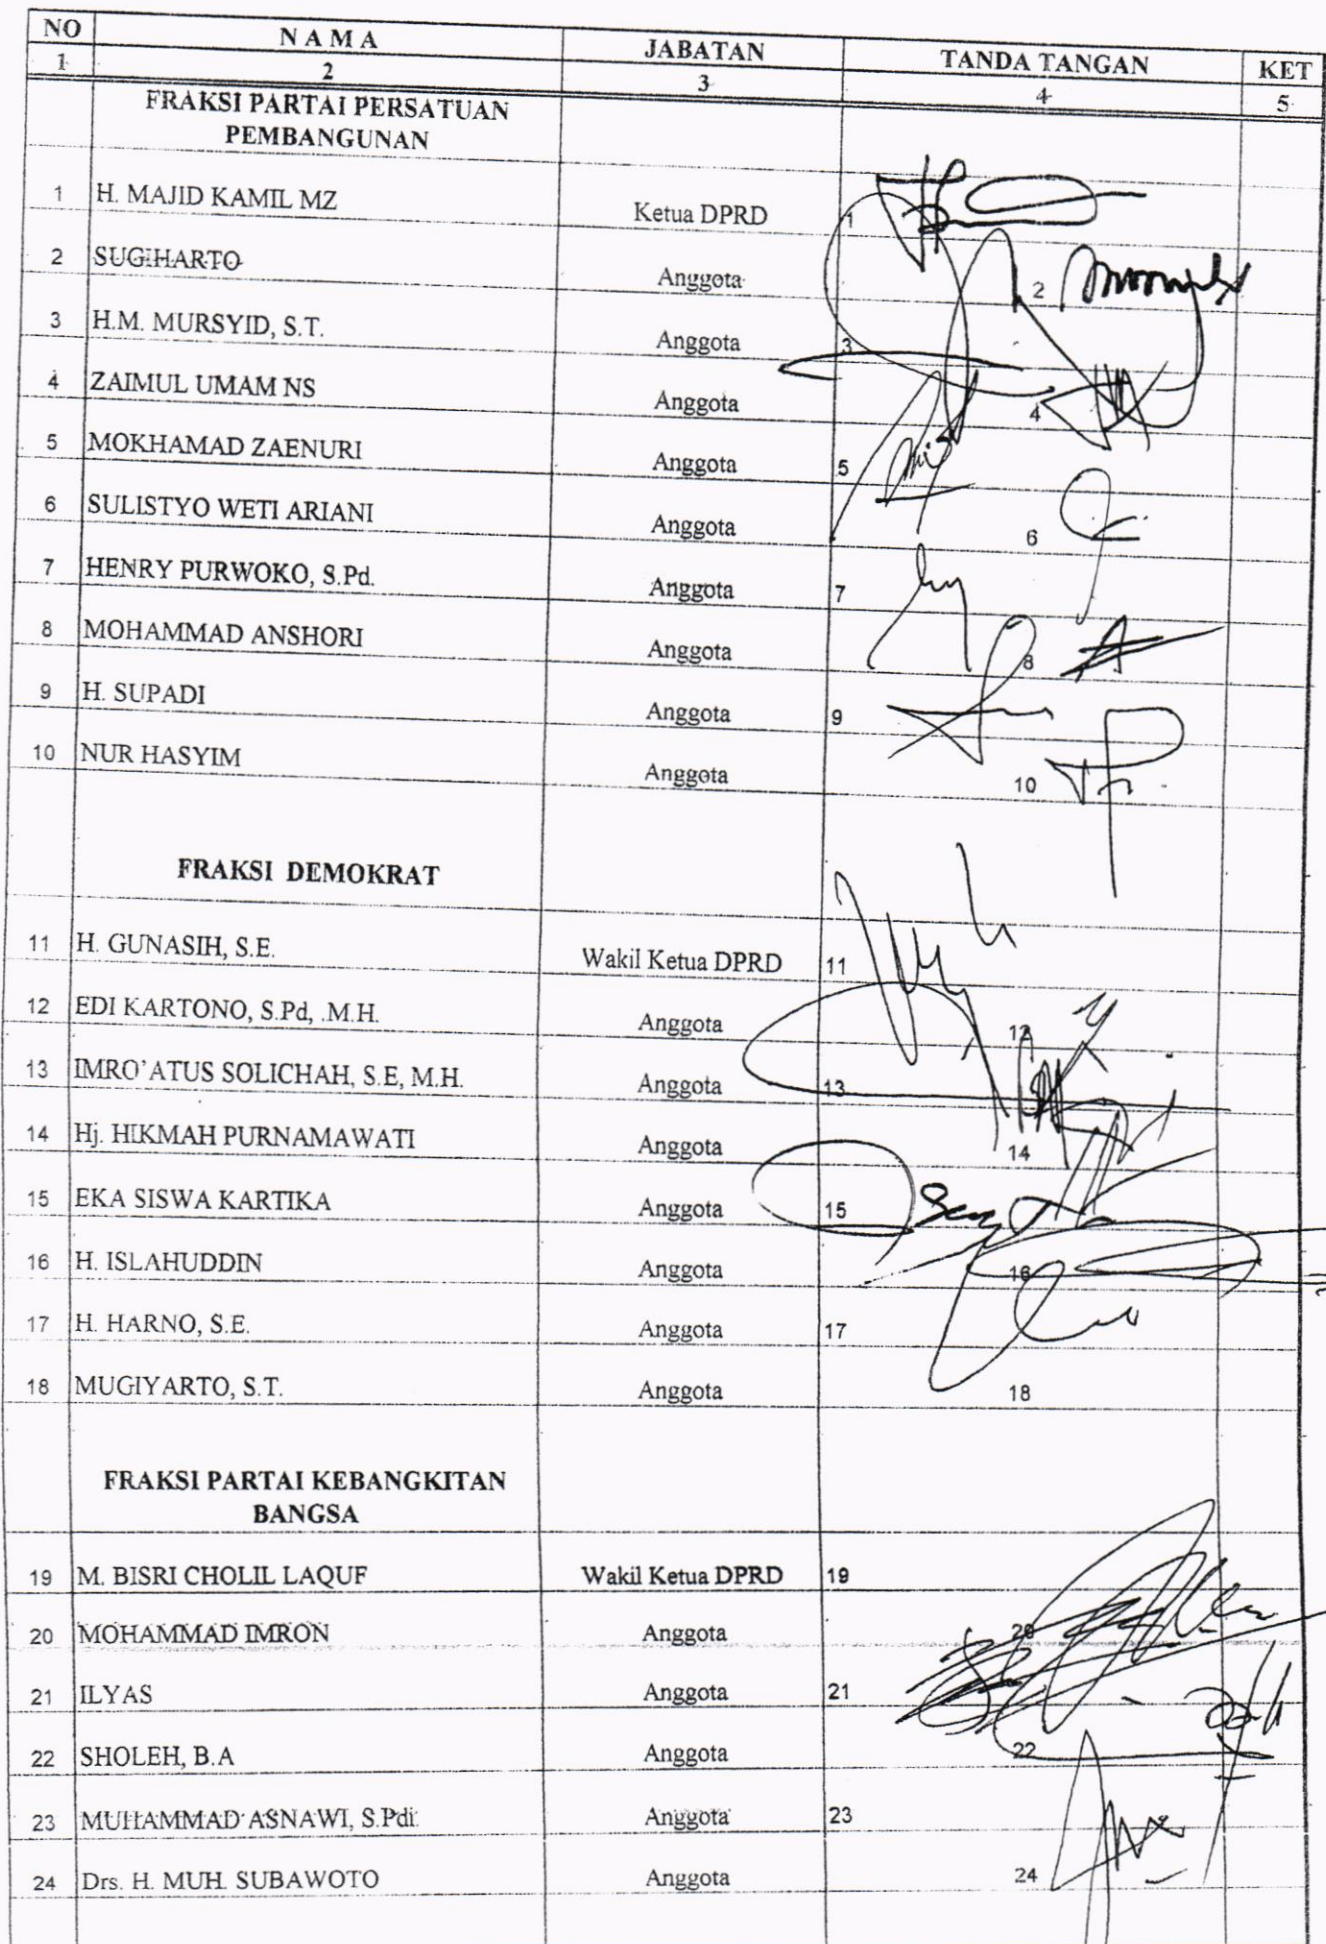 NO NAMA JABATAN TANDA TANGAN KET
1 2 3 4 5
FRAKSI PARTAI PERSATUAN
PEMBANGUNAN
1 H. MAJID KAMIL MZ Ketua DPRD 1
2 SUGIHARTO Anggota 2
3 H.M. MURSYID, S.T. Anggota 3
4 ZAIMUL UMAM NS Anggota 4
5 MOKHAMAD ZAENURI Anggota 5
6 SULISTYO WETI ARIANI Anggota 6
7 HENRY PURWOKO, S.Pd. Anggota 7
8 MOHAMMAD ANSHORI Anggota 8
9 H. SUPADI Anggota 9
10 NUR HASYIM Anggota 10
FRAKSI DEMOKRAT
11 H. GUNASIH, S.E. Wakil Ketua DPRD 11
12 EDI KARTONO, S.Pd, .M.H. Anggota 12
13 IMRO'ATUS SOLICHAH, S.E, M.H. Anggota 13
14 Hj. HIKMAH PURNAMAWATI Anggota 14
15 EKA SISWA KARTIKA Anggota 15
16 H. ISLAHUDDIN Anggota 16
17 H. HARNO, S.E. Anggota 17
18 MUGIYARTO, S.T. Anggota 18
FRAKSI PARTAI KEBANGKITAN
BANGSA
19 M. BISRI CHOLIL LAQUF Wakil Ketua DPRD 19
20 MOHAMMAD IMRON Anggota 20
21 ILYAS Anggota 21
22 SHOLEH, B.A Anggota 22
23 MUHAMMAD ASNAWI, S.Pdi. Anggota 23
24 Drs. H. MUH. SUBAWOTO Anggota 24